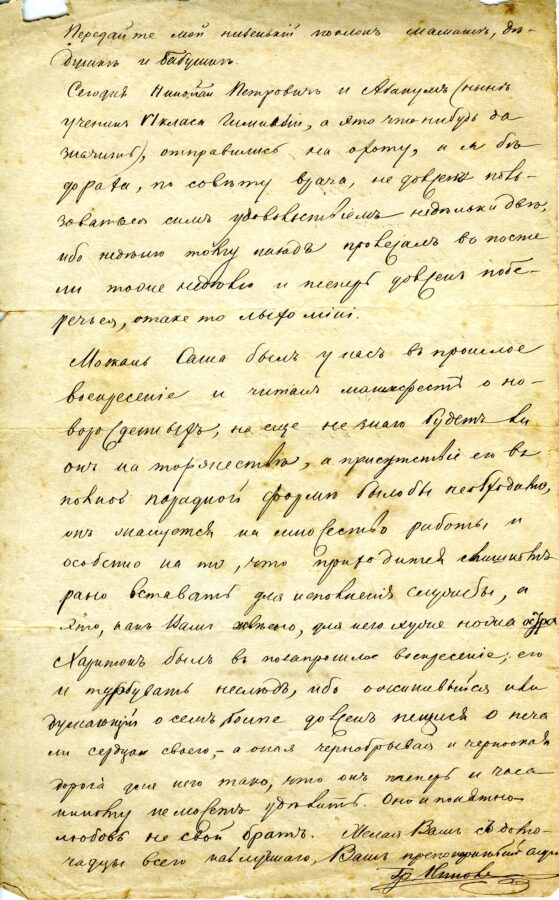 Передайте мой низенькій поклонъ мамашѣ, дѣ-
душкѣ и бабушкѣ.
Сегодня Николай Петровичъ и Абакумъ (нынѣ
ученикъ VI класа Гимназіи, а это что нибудь да
значитъ), отправились на охоту, а я бѣ
по совѣту врача, не долженъ поль-
зоваться симъ удовольствіемъ недѣльки двѣ,
ибо недѣлю тому назадъ пролежалъ въ посте
ли тоже недѣлю и теперь долженъ побе-
речься, а таке то лыхо мині.
Можаль Саша былъ у насъ въ прошлое
воскресеніе и читалъ манифестъ о но-
ворожденныхъ, но еще не знаю будетъ ли
онъ на торжествѣ, а присутствіе его въ
полной парадной формѣ былобы необходимо,
онъ жалуется на множество работы и
особенно на то, что приходится слишкомъ
рано вставать для исполненія службы, а
это, какъ Вамъ извѣстно, для него хуже ножа остра
Харитонъ былъ въ позапрошлое воскресеніе; его
и турбувать неслюдъ, ибо оженившійся или
думающій о семъ болѣе долженъ пещися о печа
ли сердца своего, – а оная чернобрывая и черноокая
дорога для него тако, что онъ теперь и часа
никому не можетъ удѣлить. Оно и понятно
любовь не свой братъ. Желая Вамъ съ домо-
чадцы всего наилучшаго, Вашъ